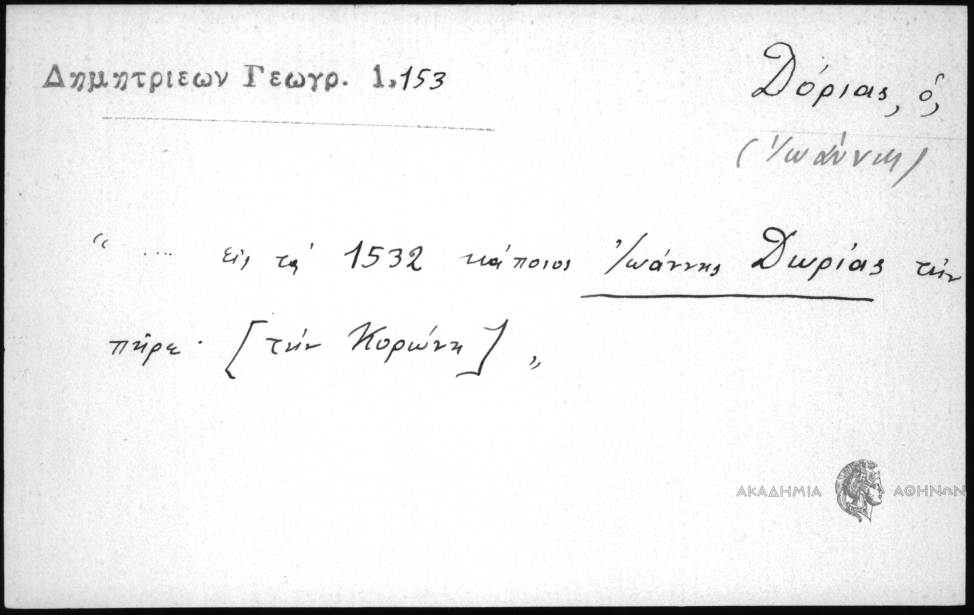 Δημητριεων Γεωγρ. 1,153
Δόριας, ὁ,
(Ἰωάννης)
“ .... εἰς τά 1532 κάποιος Ἰωάννης Δωρίας τήν
πῆρε · [τήν Κορώνη] „
ΑΚΑΔΗΜΙΑ ΑΘΗΝΩΝ